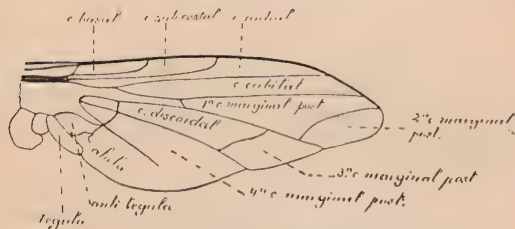 c basal c subcostal c radial
c cubital
1re c marginal post
c. discoidal
2e c marginal
post.
3me c marginal post
4me c marginal post.
alula
anti tegula
tegula